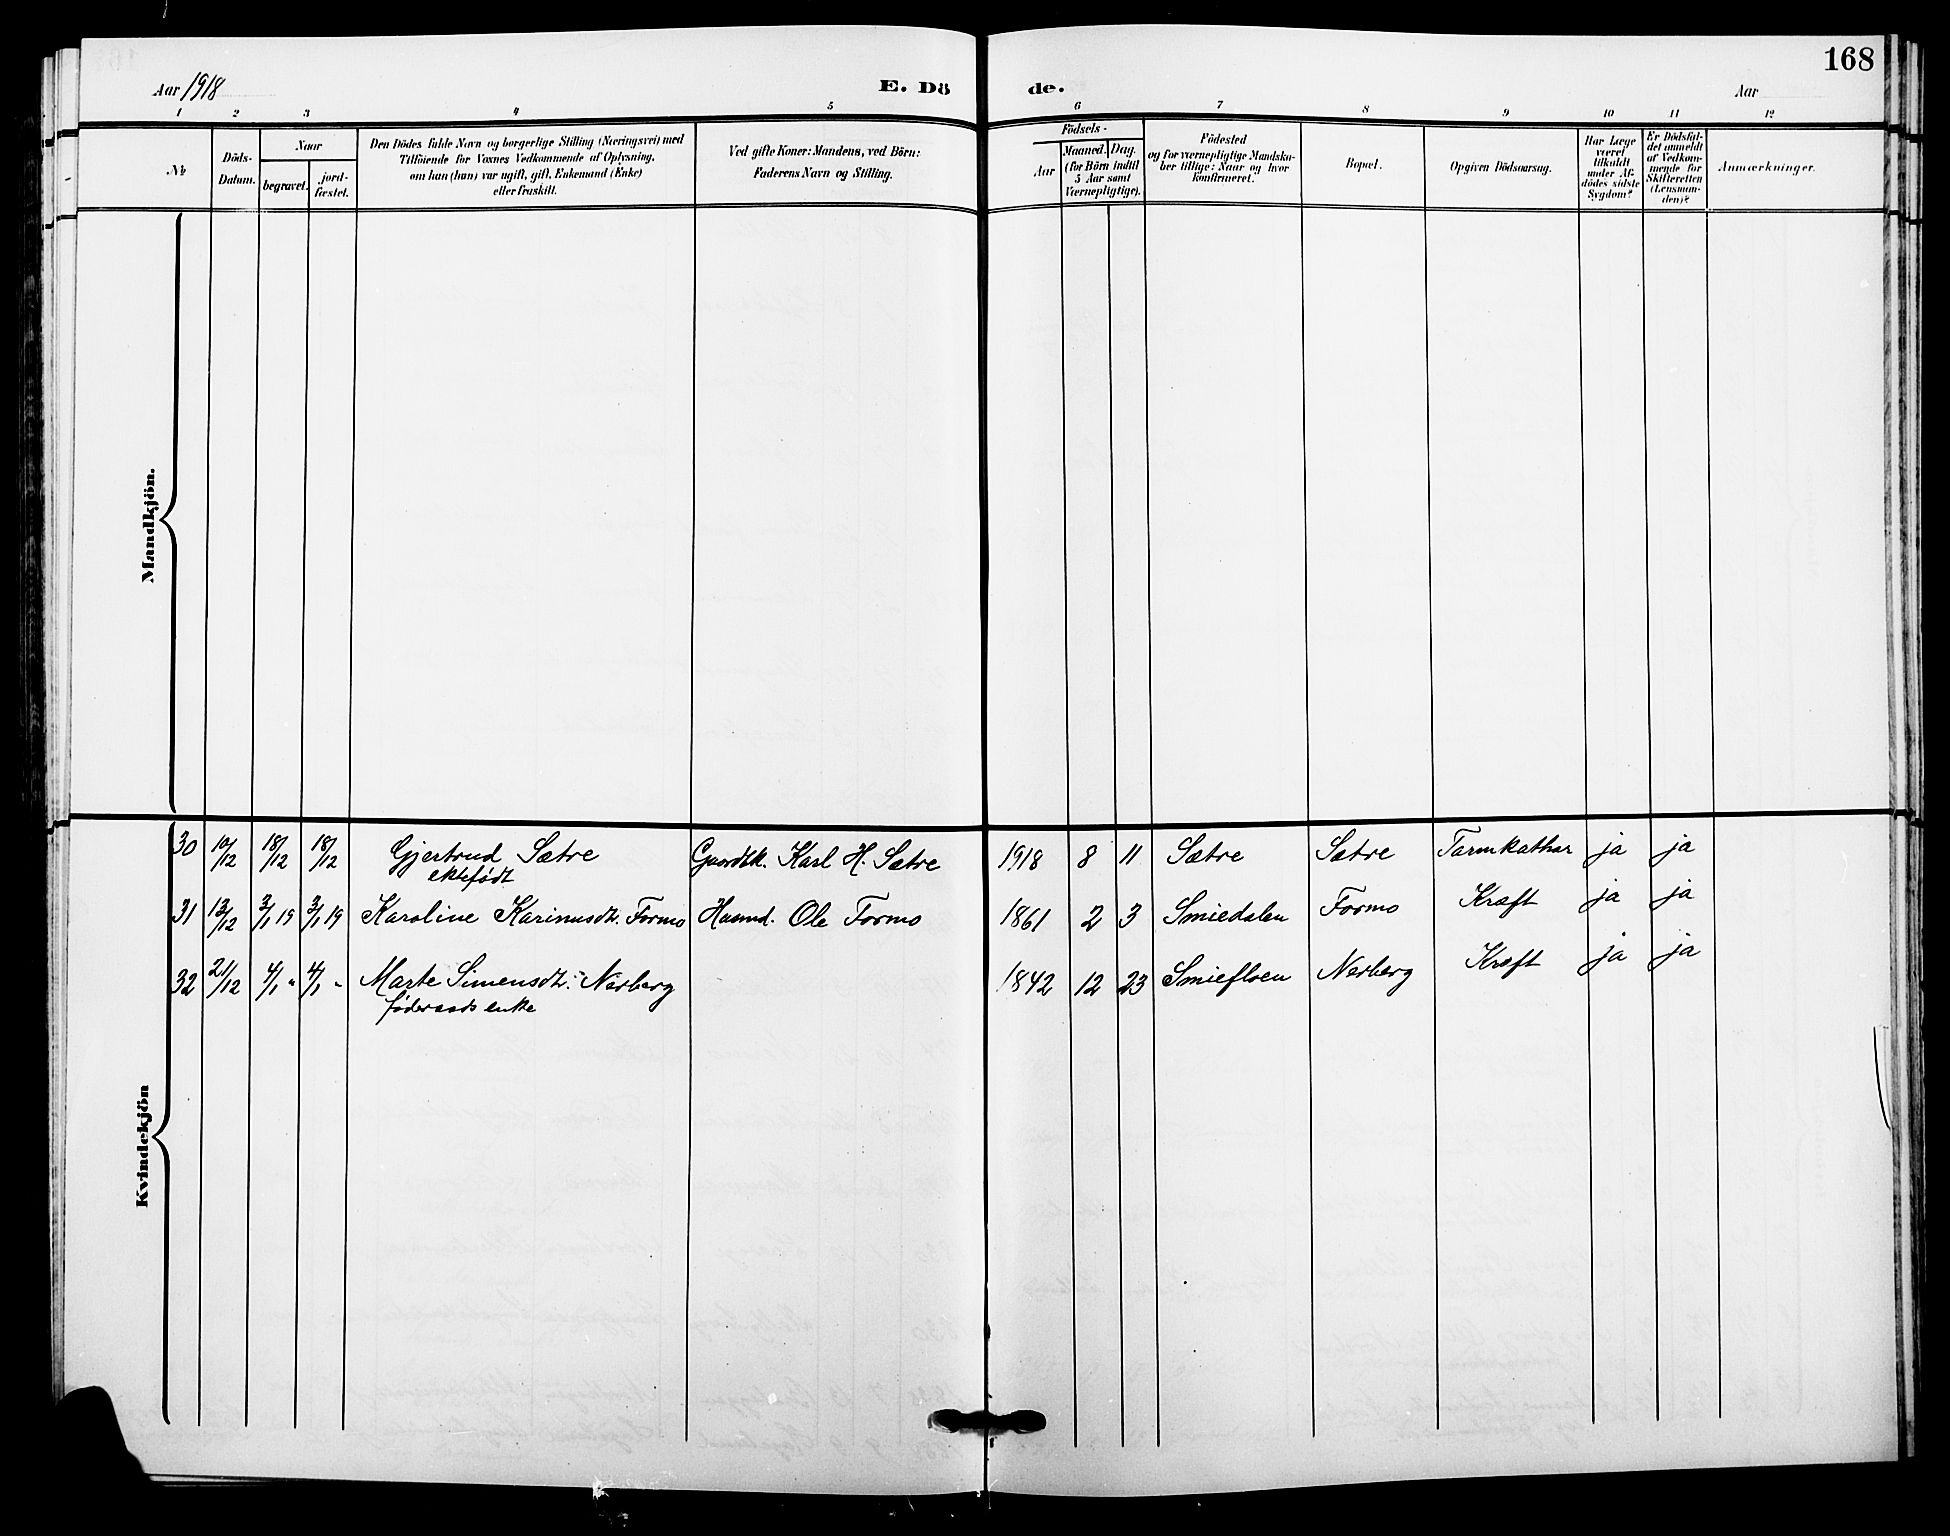 168
Aar 1918
E. Dö de.
Aar
1 2 3 4 5 6 7 8 9 10 11 12
No
Döds-Datum.
Naar
begravet.
jord-fæstet.
Den Dödes fulde Navn og borgerlige Stilling (Næringsvei) med
Tilföiende for Voxnes Vedkommende af Oplysning,
om han (hun) var ugift, gift, Enkemand (Enke)
eller fraskilt.
Ved gifte Koner: Mandens, ved Börn:
Faderens Navn og Stilling.
Födsels-
Aar
Maaned. Dag.
(for Börn indtil
5 Aar samt
Værnepligtige).
Födested
og for værnepligtige Mandska-
ber tillige: Naar og hvor
konfirmeret.
Bopæl.
Opgiven Dödsaarsag.
Har Læge
været
tilkaldt
under Af-
dödes sidste
Sygdom?
Er Dödsfal-
det anmeldt
af Vedkom-
mende for
Skifteretten
(Lensman-
den)?
Anmærkninger.
Mandkjön.
Kvindekjön
30 10/12 18/12 18/12 Gjertrud Sætre Gaardbk. Karl H. Sætre 1918 8 11 Sætre Sætre Tarmkathar ja ja
ektefødt
31 13/12 3/1 19 3/1 19 Karoline Karinusdtr. Formo Husmd. Ole Formo 1861 2 3 Smiedalen Formo Kræft ja ja
32 21/12 4/1 " 4/1 " Marte Simensdtr. Nerberg 1842 12 23 Smiefloen Nerberg Kræft ja ja
føderaads enke